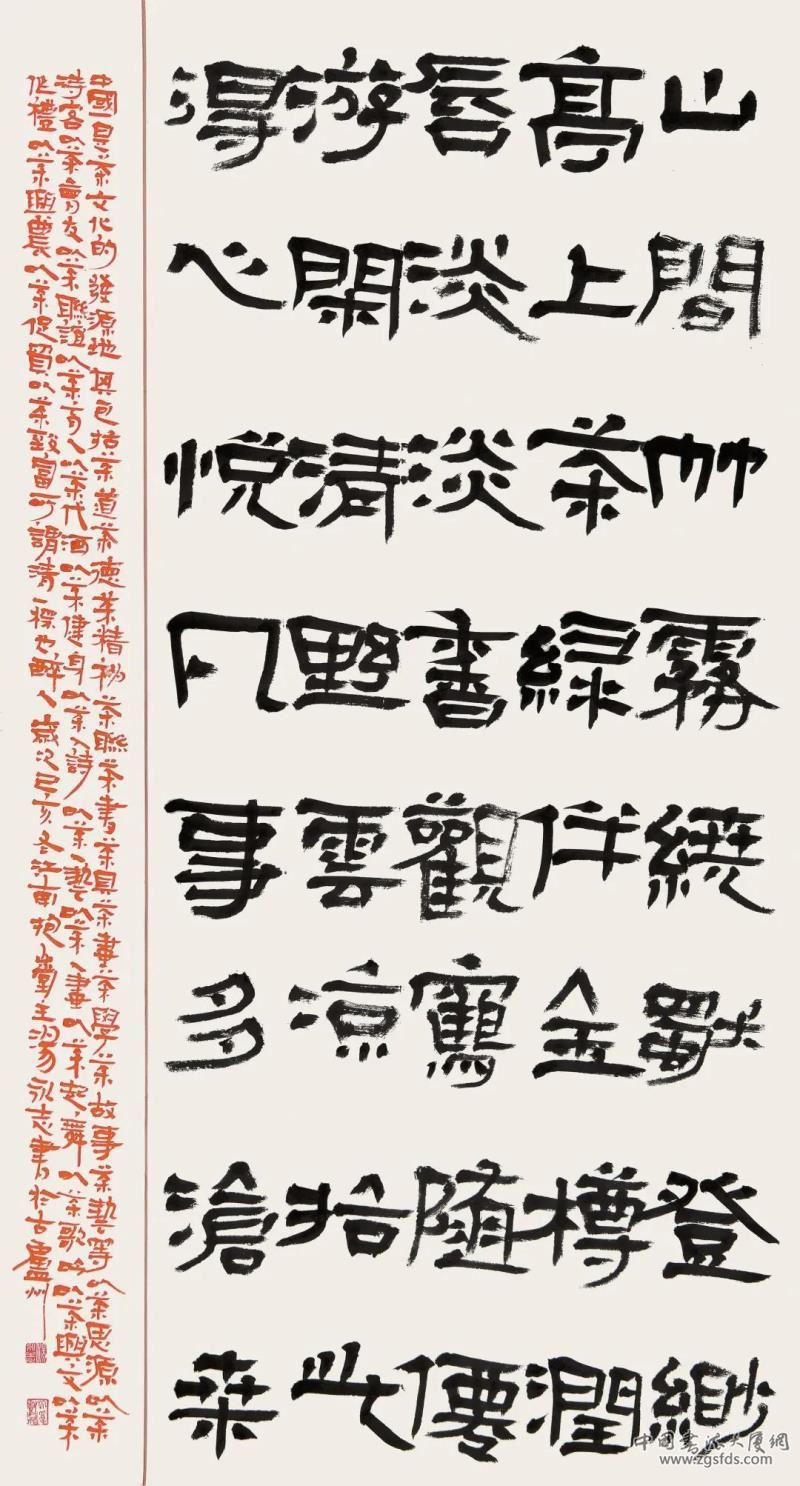 山間竹霧繞獨登緲
高上茶綠伴金樽潤
唇淡淡香觀鶴隨僊
游閑清野雲涼拾此
得心悅凡事多滄桑
中國是茶文化的發源地其包括茶道茶德茶精神茶聯茶書茶具茶畫茶學茶故事茶藝等以茶思源以茶
待客以茶會友以茶聯誼以茶育人以茶代酒以茶健身以茶入詩以茶入藝以茶入畫以茶起舞以茶歌吟以茶興文以茶
作禮以茶興農以茶促貿以茶致富可謂清也醉人歲次己亥冬江南抱主湯永志書於古廬州
中國書法大廈網
www.zgsfds.com